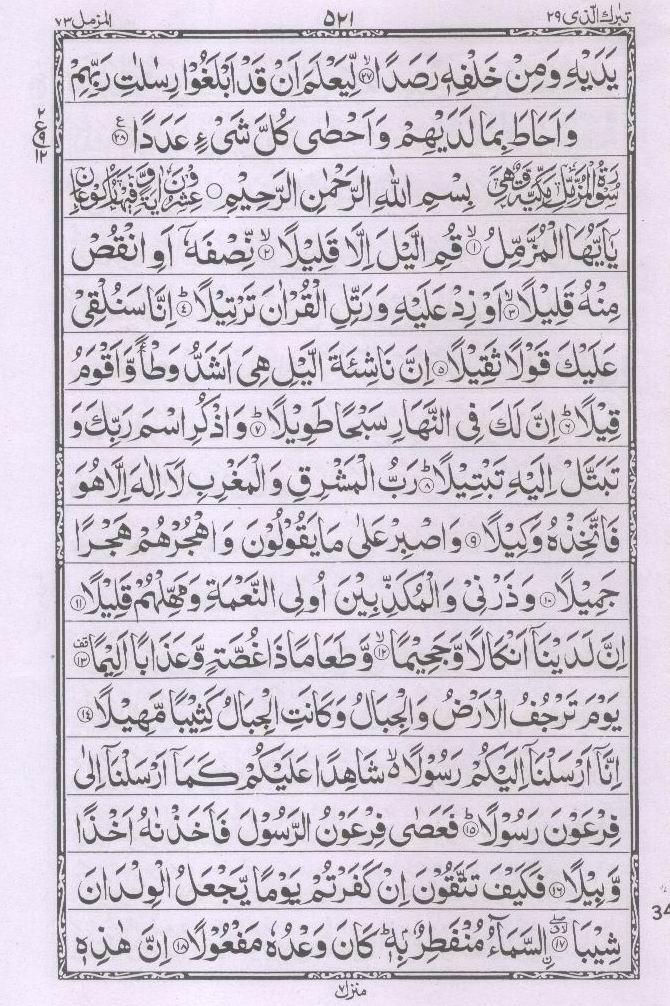 تبٰرك الّذى ٢٩ ٥٢١ المزمل ٧٣
يَدَيۡهِ وَمِنۡ خَلۡفِهٖ رَصَدًا ۙ‏﴿۲۷﴾ لِّيَعۡلَمَ اَنۡ قَدۡ اَبۡلَغُوۡا رِسٰلٰتِ رَبِّهِمۡ
وَاَحَاطَ بِمَا لَدَيۡهِمۡ وَاَحۡصٰى كُلَّ شَىۡءٍ عَدَدًا ﴿۲۸﴾
٢
ع
٩
١٢
سُوۡرَةُ الۡمُزَّمِّلِ مَكِّيَّةٌ وَّهِىَ بِسۡمِ اللهِ الرَّحۡمٰنِ الرَّحِيۡمِ ○ عِشۡرُوۡنَ اٰيَةً وَّفِيۡهَا رُكُوۡعَانِ
يٰۤاَيُّهَا الۡمُزَّمِّلُ ۙ‏﴿۱﴾ قُمِ الَّيۡلَ اِلَّا قَلِيۡلًا ۙ‏﴿۲﴾ نِّصۡفَهٗۤ اَوِ انْقُصۡ
مِنۡهُ قَلِيۡلًا ۙ‏﴿۳﴾ اَوۡ زِدۡ عَلَيۡهِ وَرَتِّلِ الۡقُرۡاٰنَ تَرۡتِيۡلًا ؕ‏﴿۴﴾ اِنَّا سَنُلۡقِىۡ
عَلَيۡكَ قَوۡلًا ثَقِيۡلًا ﴿۵﴾ اِنَّ نَاشِئَةَ الَّيۡلِ هِىَ اَشَدُّ وَطۡـأً وَّاَقۡوَمُ
قِيۡلًا ؕ‏﴿۶﴾ اِنَّ لَكَ فِى النَّهَارِ سَبۡحًا طَوِيۡلًا ؕ‏﴿۷﴾ وَاذۡكُرِ اسۡمَ رَبِّكَ وَ
تَبَتَّلۡ اِلَيۡهِ تَبۡتِيۡلًا ؕ‏﴿۸﴾ رَبُّ الۡمَشۡرِقِ وَالۡمَغۡرِبِ لَاۤ اِلٰهَ اِلَّا هُوَ
فَاتَّخِذۡهُ وَكِيۡلًا ﴿۹﴾ وَاصۡبِرۡ عَلٰى مَا يَقُوۡلُوۡنَ وَاهۡجُرۡهُمۡ هَجۡرًا
جَمِيۡلًا ﴿۱۰﴾ وَذَرۡنِىۡ وَالۡمُكَذِّبِيۡنَ اُولِى النَّعۡمَةِ وَمَهِّلۡهُمۡ قَلِيۡلًا ﴿۱۱﴾
اِنَّ لَدَيۡنَاۤ اَنۡكَالًا وَّجَحِيۡمًا ۙ‏﴿۱۲﴾ وَّطَعَامًا ذَا غُصَّةٍ وَّعَذَابًا اَلِيۡمًا قف﴿۱۳﴾
يَوۡمَ تَرۡجُفُ الۡاَرۡضُ وَالۡجِبَالُ وَكَانَتِ الۡجِبَالُ كَثِيۡبًا مَّهِيۡلًا ﴿۱۴﴾
اِنَّاۤ اَرۡسَلۡنَاۤ اِلَيۡكُمۡ رَسُوۡلًا ۙ شَاهِدًا عَلَيۡكُمۡ كَمَاۤ اَرۡسَلۡنَاۤ اِلٰى
فِرۡعَوۡنَ رَسُوۡلًا ؕ‏﴿۱۵﴾ فَعَصٰى فِرۡعَوۡنُ الرَّسُوۡلَ فَاَخَذۡنٰهُ اَخۡذًا
وَّبِيۡلًا ﴿۱۶﴾ فَكَيۡفَ تَتَّقُوۡنَ اِنۡ كَفَرۡتُمۡ يَوۡمًا يَّجۡعَلُ الۡوِلۡدَانَ
شِيۡبَا ﴿۱۷﴾ ۨالسَّمَآءُ مُنۡفَطِرٌۢ بِهٖ ؕ كَانَ وَعۡدُهٗ مَفۡعُوۡلًا ﴿۱۸﴾ اِنَّ هٰذِهٖ
منزل ٧
34